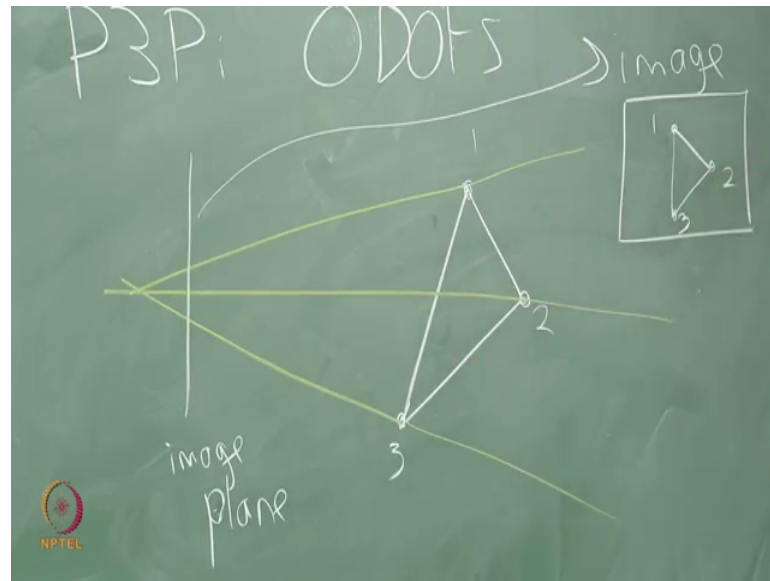 P3P: 0 DOFs
image
1
2
3
1
2
3
image
plane
NPTEL